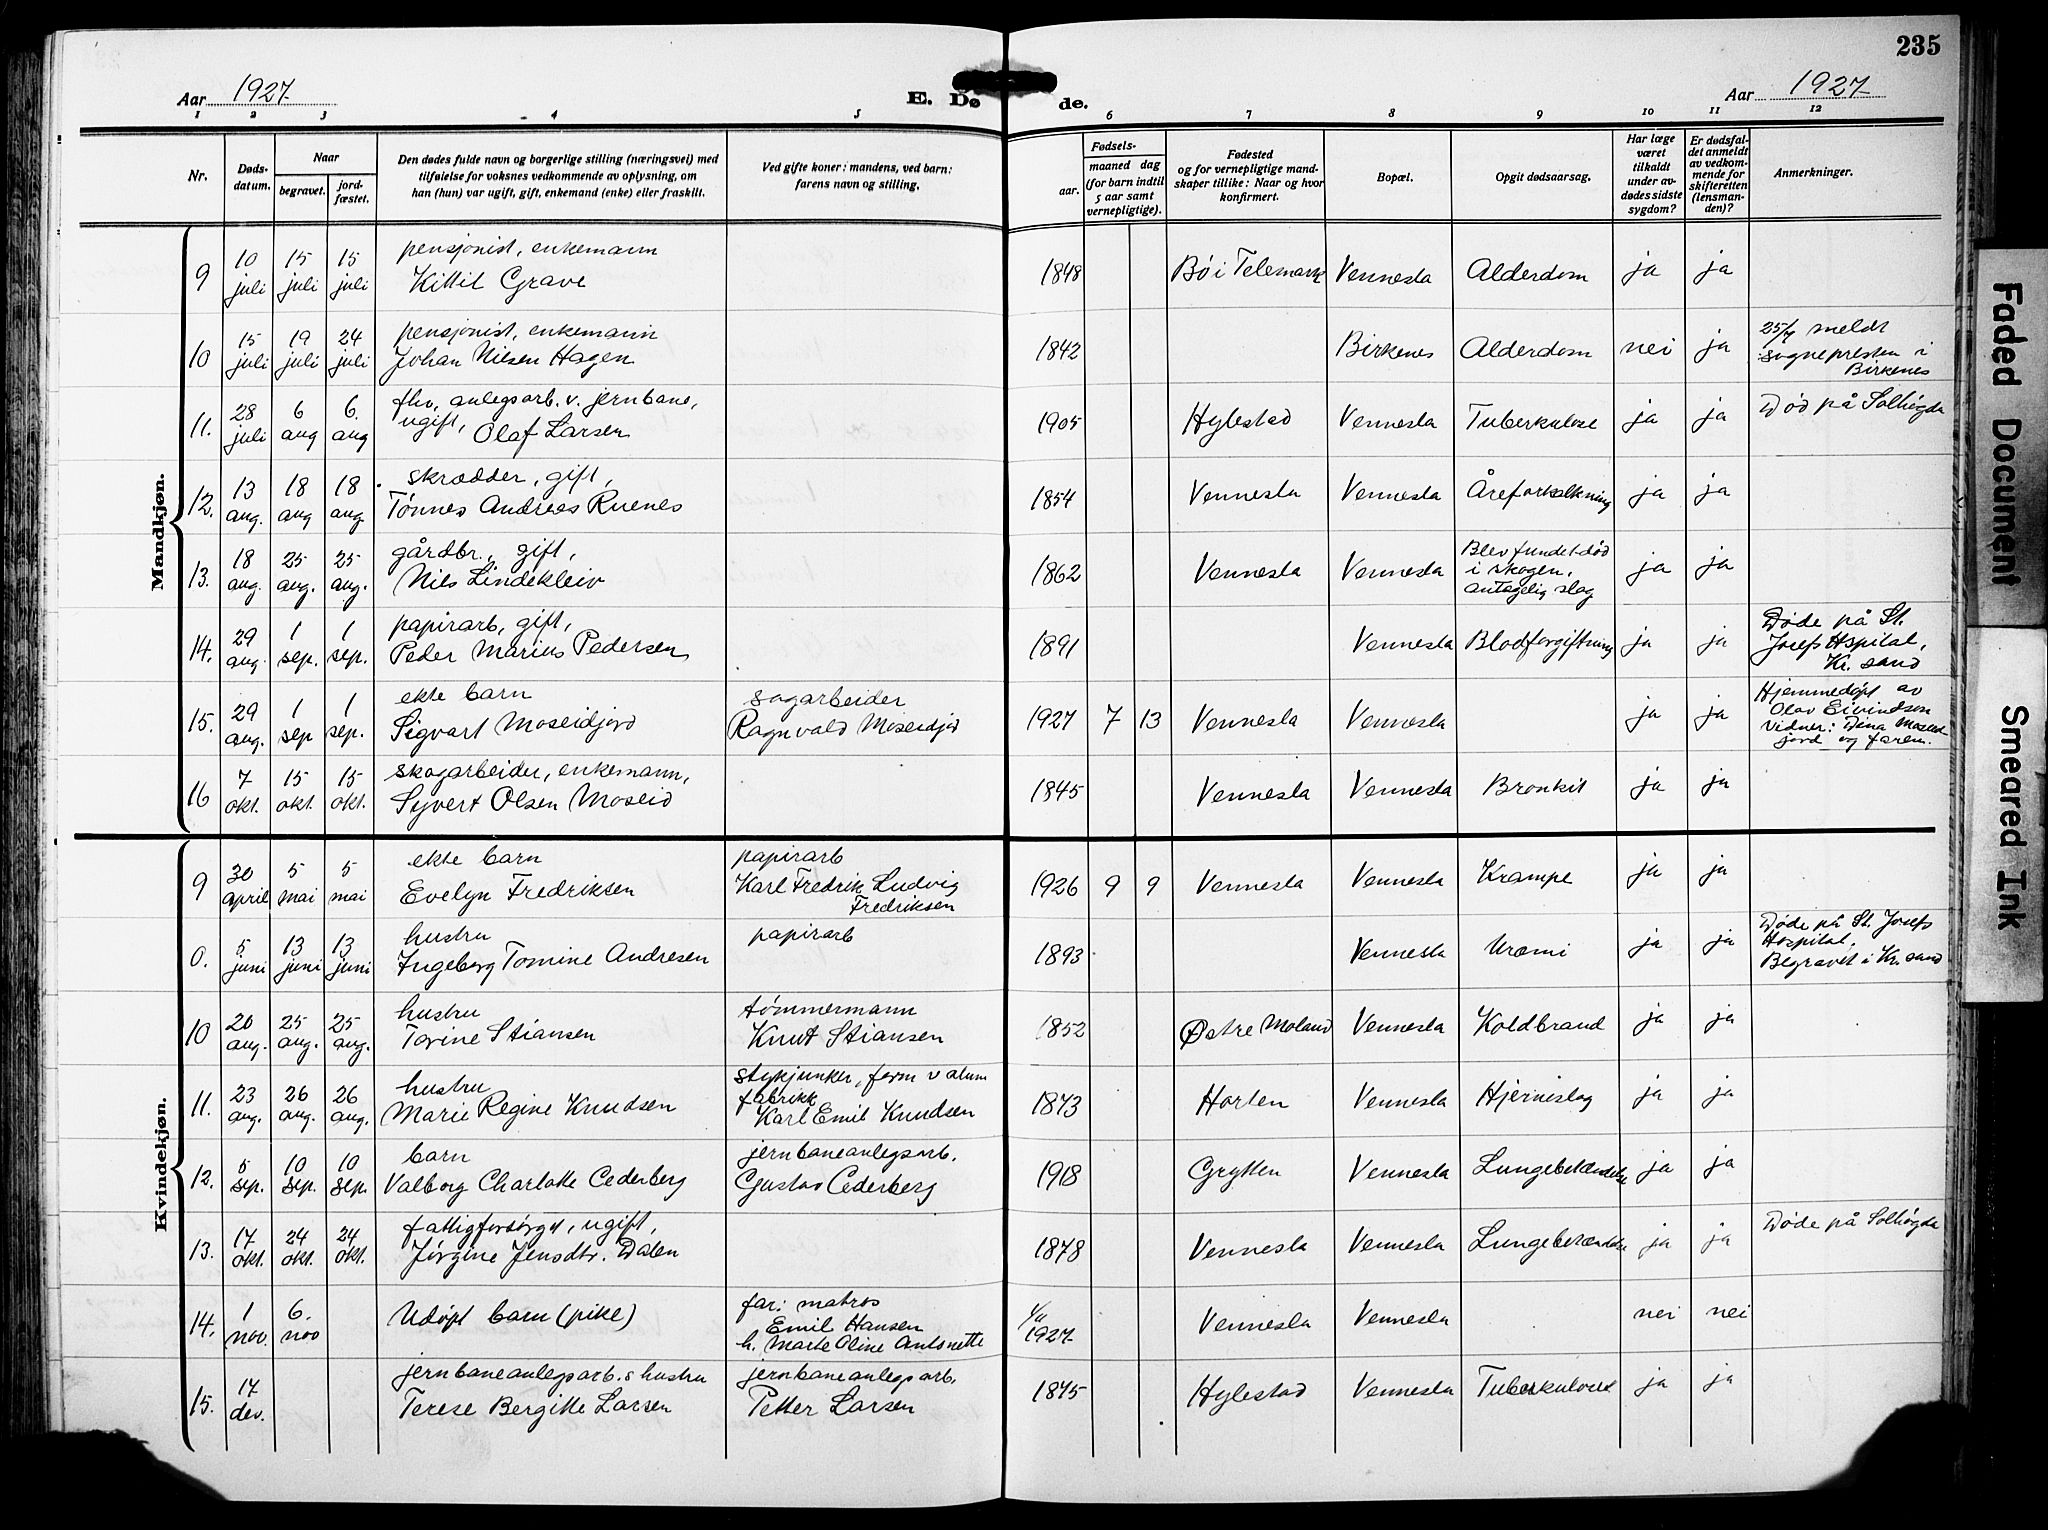 235
Aar 1927
E. Dø
de.
Aar 1927
1 2 3 4 5 6 7 8 9 10 11 12
Nr.
Døds-datum.
Naar
begravet.
jord-fæstet.
Den dødes fulde navn og borgerlige stilling (næringsvei) med tilføielse for voksnes vedkommende av oplysning, om han (hun) var ugift, gift, enkemand (enke) eller fraskilt.
Ved gifte koner: mandens, ved barn: farens navn og stilling.
Fødsels-
aar.
maaned dag (for barn indtil 5 aar samt vernepligtige).
Fødested og for vernepligtige mand-skaper tillike: Naar og hvor konfirmert.
Bopæl.
Opgit dødsaarsag.
Har læge været tilkaldt under av-dødes sidste sygdom?
Er dødsfal-det anmeldt av vedkom-mende for skifteretten (lensman-den)?
Anmerkninger.
Mandkjøn.
9 10 juli 15 juli 15 juli pensjonist, enkemann Kittil Grave 1848 Bø i Telemark Vennesla Alderdom ja ja
10 15 juli 19 juli 24 juli pensjonist, enkemann Johan Nilsen Hagen 1842 Birkenes Alderdom nei ja 25/7 meldt sognepresten i Birkenes
11. 28 juli 6 aug 6. aug fhv. anlegsarb. v. jernbane, ugift, Olaf Larsen 1905 Hylestad Vennesla Tuberkulose ja ja Død på Solhøgda
12. 13 aug. 18 aug 18 aug skrædder, gift, Tønnes Andreas Ruenes 1854 Vennesla Vennesla Åreforkalkning ja ja
13. 18 aug. 25 aug. 25 aug. gårdbr., gift, Nils Lindekleiv 1862 Vennesla Vennesla Blev fundet død i skogen, antagelig slag ja ja
14. 29 aug. 1 sep. 1 sep. papirarb, gift, Peder Marius Pedersen 1891 Vennesla Blodforgiftning ja ja Døde på St. Josefs Hspital, Kr. sand
15. 29 aug. 1 sep 1 sep. ekte barn Sigvart Moseidjord sagarbeider Ragnvald Moseidjord 1927 7 13 Vennesla Vennesla ja ja Hjemmedøpt av Olav Eivindsen Vidner: Dina Moseidjord og faren.
16 7 okt. 15 okt. 15 okt. skogarbeider, enkemann, Syvert Olsen Moseid 1845 Vennesla Vennesla Bronkit ja ja
Kvindekjøn.
9 30 april 5 mai 5 mai ekte barn Evelyn Fredriksen papirarb Karl Fredrik Ludvig Fredriksen 1926 9 9 Vennesla Vennesla Krampe ja ja
0. 5 juni 13 juni 13 juni hustru Ingeborg Tomine Andresen papirarb 1893 Vennesla Uræmi ja ja Døde på St. Josefs Hospital, Begravet i Kr. sand
10 20 aug. 25 aug. 25 aug. hustru Torine Stiansen tømmermann Knut Stiansen 1852 Østre Moland Vennesla Koldbrand ja ja
11. 23 aug. 26 aug. 26 aug. hustru Marie Regine Knudsen stykjunker, form v alum fabrikk Karl Emil Knudsen 1873 Horten Vennesla Hjerneslag ja ja
12. 5 sep. 10 sep. 10 sep. barn Valborg Charlotte Cederberg jernbaneanlegsarb. Gustav Cederberg 1918 Grytten Vennesla Lungebetændelse ja ja
13. 17 okt. 24 okt. 24 okt. fattigforsørget, ugift, Jørgine Jensdtr. Dalen 1878 Vennesla Vennesla Lungebetændelse ja ja Døde på Solhøgda
14. 1 nov. 6. nov Udøpt barn (pike) far: matros Emil Hansen h. Marte Oline Antonette 1/11 1927 Vennesla Vennesla nei nei
15. 17 dev. jernbaneanlegsarb.s hustru Terese Bergitte Larsen jernbaneanlegsarb. Petter Larsen 1875 Hylestad Vennesla Tuberkulose ja ja
Faded Document
Smeared Ink